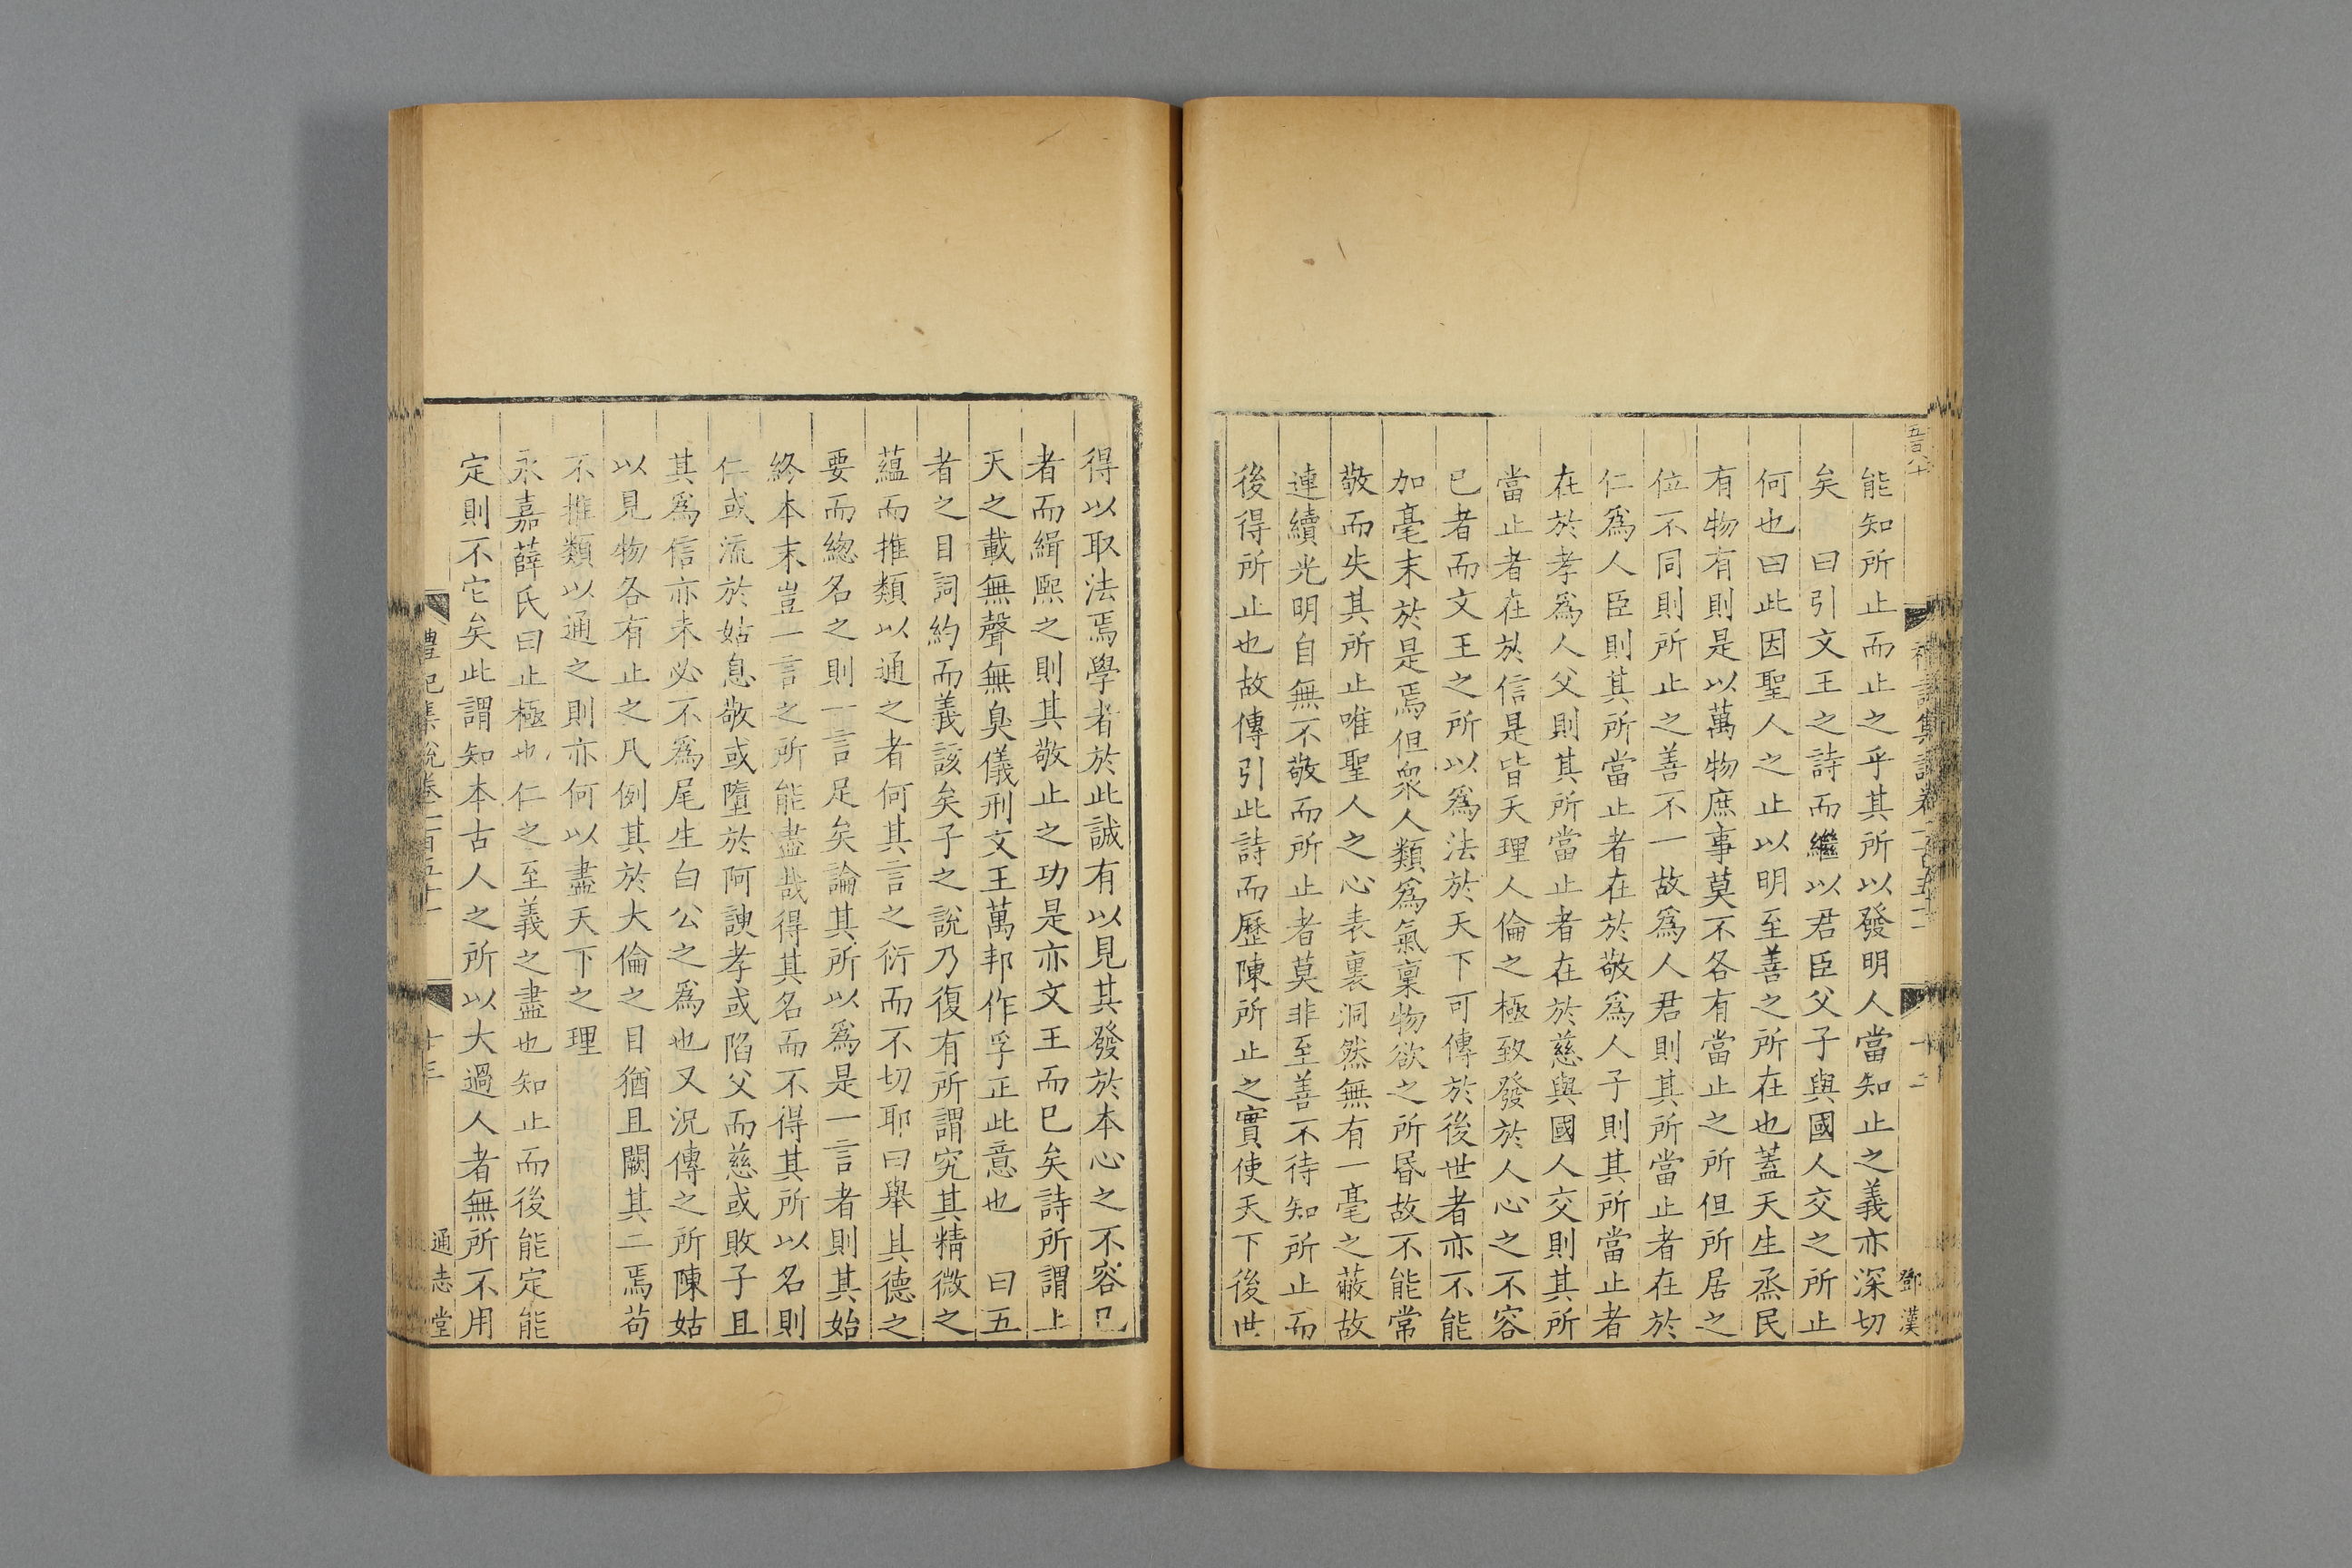 能知所止而止之乎其所以發明人當知止之義亦深切
矣　曰引文王之詩而繼以君臣父子與國人交之所止
何也曰此因聖人之止以明至善之所在也蓋天生烝民
有物有則是以萬物庶事莫不各有當止之所但所居之
位不同則所止之善不一故爲人君則其所當止者在於
仁爲人臣則其所當止者在於敬爲人子則其所當止者
在於孝爲人父則其所當止者在於慈與國人交則其所
當止者在於信是皆天理人倫之極致發於人心之不容
已者而文王之所以爲法於天下可傳於後世者亦不能
加毫末於是焉但衆人類爲氣稟物欲之所昬故不能常
敬而失其所止唯聖人之心表裏洞然無有一毫之蔽故
連續光明自無不敬而所止者莫非至善不待知所止而
後得所止也故傳引此詩而歷陳所止之實使天下後世
鄧漢
得以取法焉學者於此誠有以見其發於本心之不容已
者而緝熙之則其敬止之功是亦文王而已矣詩所謂上
天之載無聲無臭儀刑文王萬邦作孚正此意也　曰五
者之目詞約而義該矣子之說乃復有所謂究其精微之
蘊而推類以通之者何其言之衍而不切耶曰舉其德之
要而緫名之則一言足矣論其所以爲是一言者則其始
終本末豈一言之所能盡哉得其名而不得其所以名則
仁或流於姑息敬或墮於阿諛孝或陷父而慈或敗子且
其爲信亦未必不爲尾生白公之爲也又況傳之所陳姑
以見物各有止之凡例其於大倫之目猶且闕其二焉苟
不推類以通之則亦何以盡天下之理
永嘉薛氏曰止極也仁之至義之盡也知止而後能定能
定則不它矣此謂知本古人之所以大過人者無所不用
禮記集說卷一百五十一
十三
通志堂